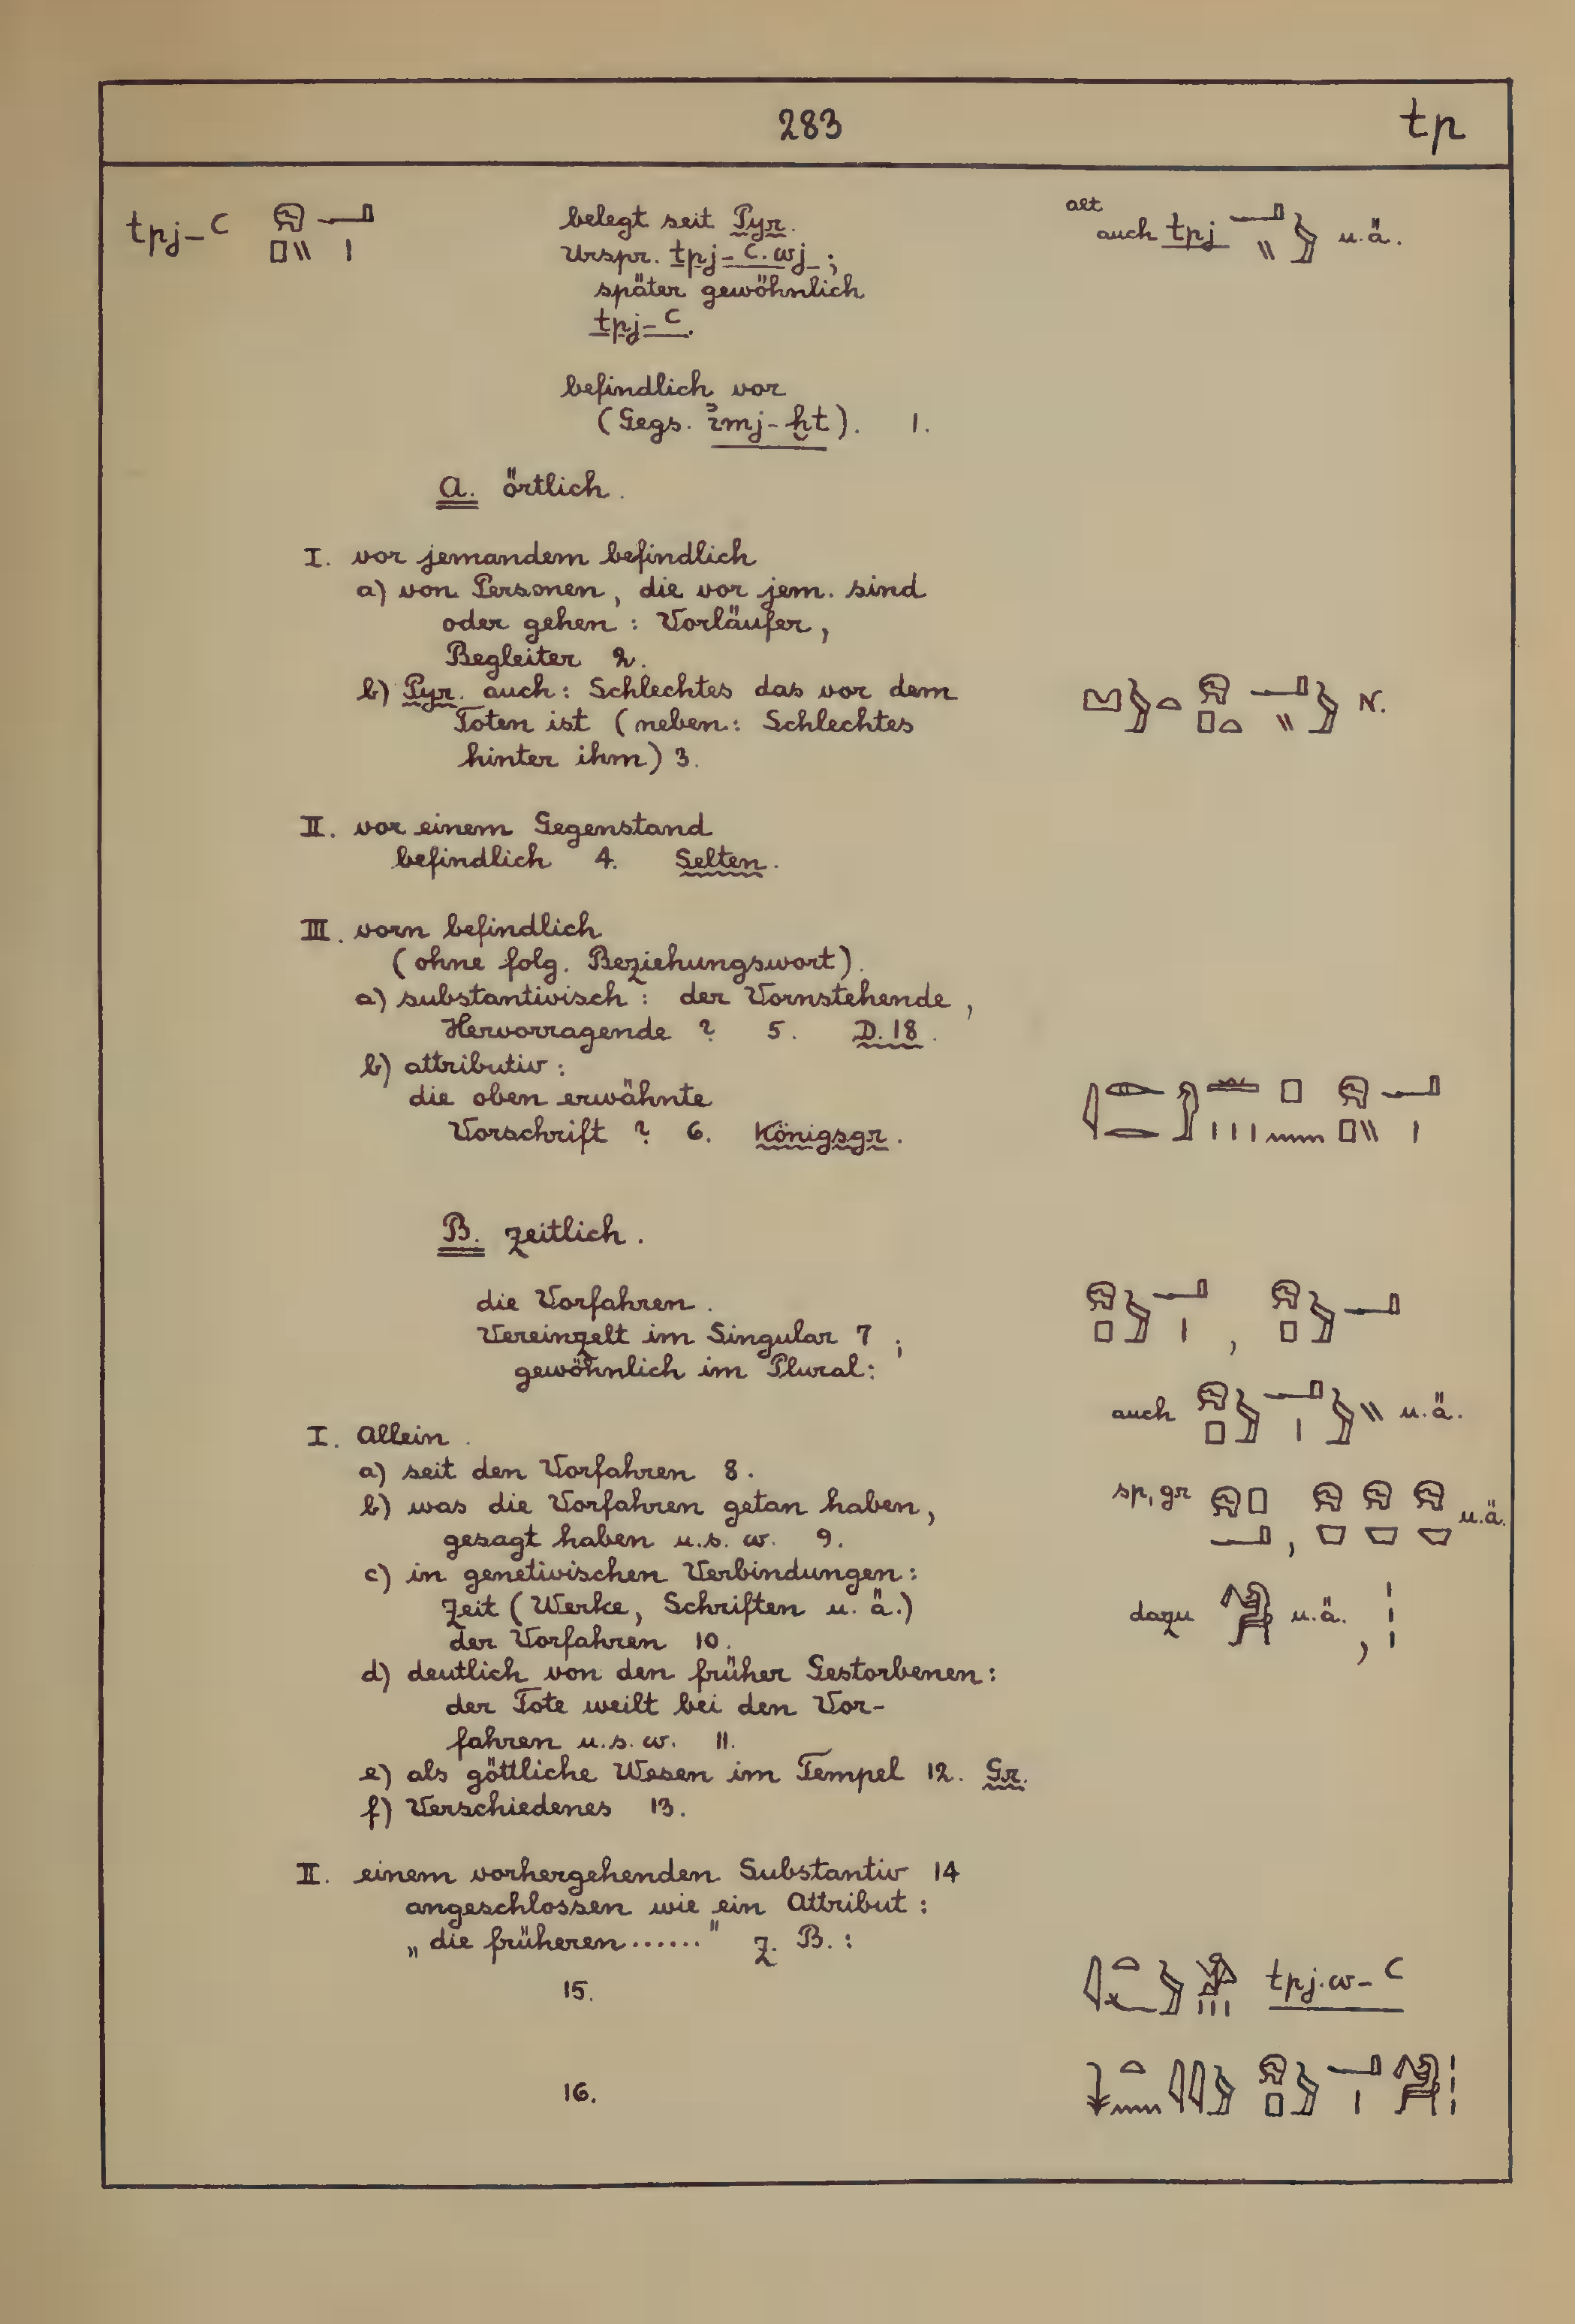 283
tp
tpj-ꜥ
belegt seit Pyr.
Urspr. tpj-ꜥ.wj;
später gewöhnlich
tpj-ꜥ.
alt
auch tpj u.ä.
befindlich vor
(Gegs. ı͗mj-ḫt). 1.
A. örtlich.
I. vor jemandem befindlich
a) von Personen, die vor jem. sind
oder gehen: Vorläufer,
Begleiter 2.
b) Pyr. auch: Schlechtes das vor dem
Toten ist (neben: Schlechtes
hinter ihm) 3.
N.
II. vor einem Gegenstand
befindlich 4. Selten.
III. vorn befindlich
(ohne folg. Beziehungswort).
a) substantivisch: der Vornstehende,
Hervorragende ? 5. D. 18.
b) attributiv:
die oben erwähnte
Vorschrift ? 6. Königsgr.
B. zeitlich.
die Vorfahren.
Vereinzelt im Singular 7;
gewöhnlich im Plural:
,
auch u.ä.
I. Allein.
a) seit den Vorfahren 8.
b) was die Vorfahren getan haben,
gesagt haben u.s.w. 9.
sp, gr , u.ä.
c) in genetivischen Verbindungen:
Zeit (Werke, Schriften u. ä.)
der Vorfahren 10.
dazu u.ä.,
d) deutlich von den früher Gestorbenen:
der Tote weilt bei den Vor-
fahren u.s.w. 11.
e) als göttliche Wesen im Tempel 12. Gr.
f) Verschiedenes 13.
II. einem vorhergehenden Substantiv 14
angeschlossen wie ein Attribut:
„die früheren......" z. B.:
15.
tpj.w-ꜥ
16.